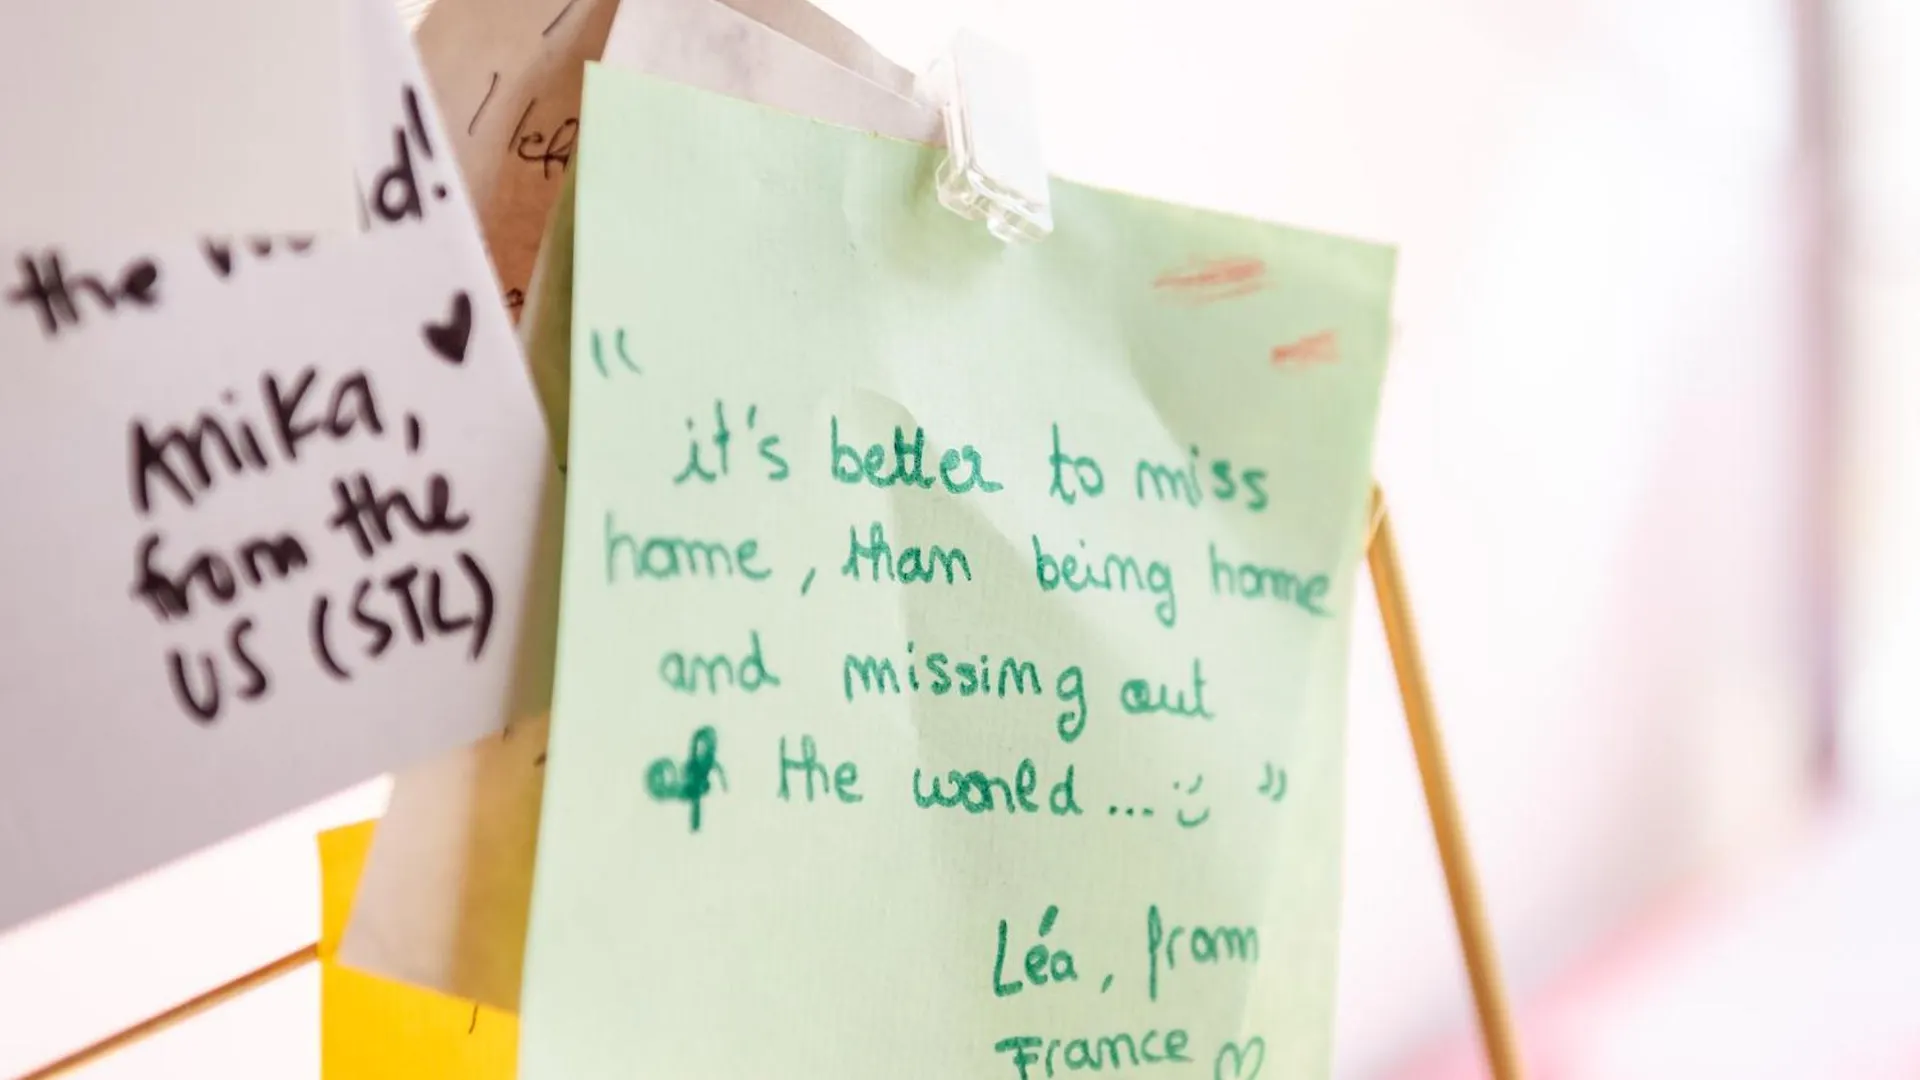 d!
the
♥
Anika,
from the
US (STL)
I left
"
it's better to miss
home, than being home
and missing out
of the world... :) "
Léa, from
France ♡